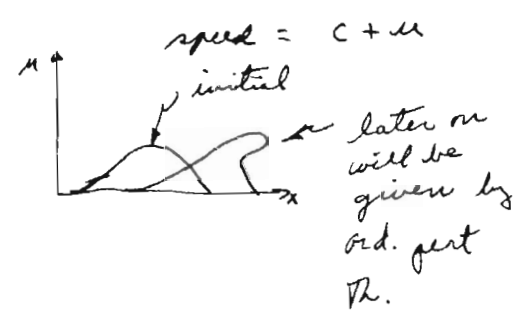 speed = c + u
u
initial
later on
will be
given by
ord. pert
Th.
x